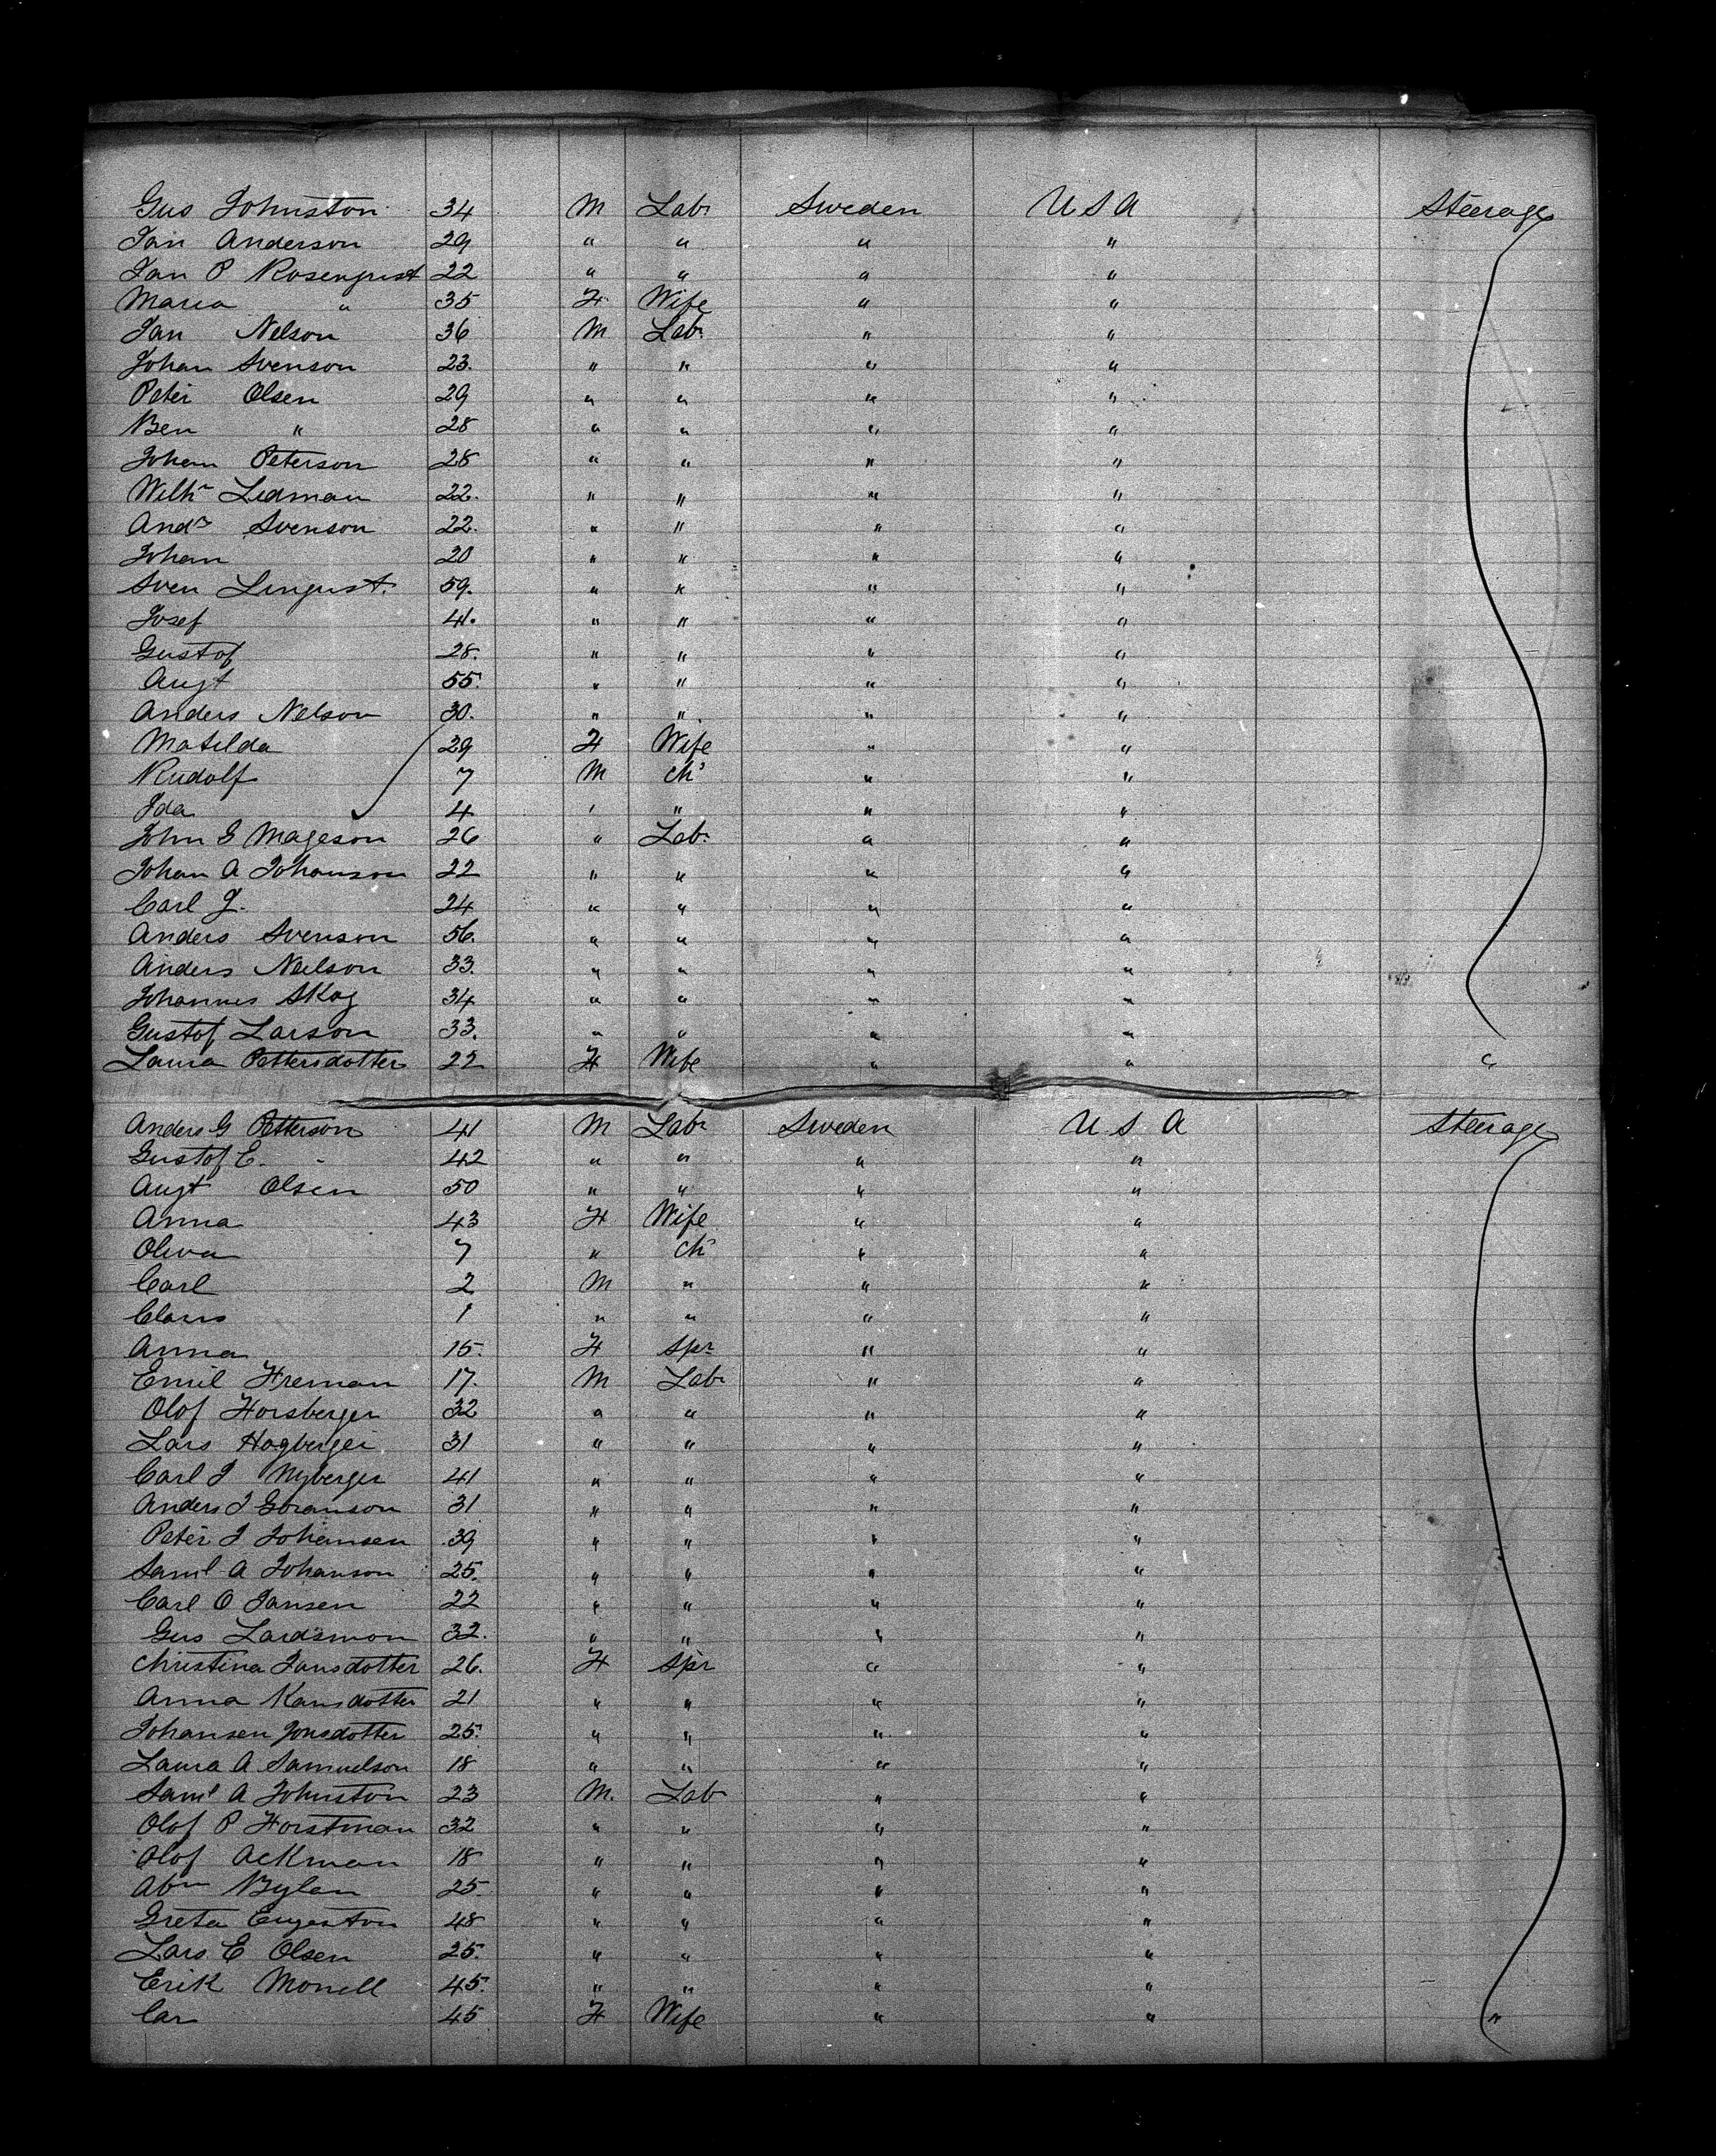 Gus Johnston 34 M Labr Sweden U S A Steerage
Jan Anderson 29 " " " "
Jan P Rosenqust 22 " " " "
Maria " 35 F Wife " "
Jan Nelson 36 M Labr " "
Johan Svenson 23. " " " "
Peter Olsen 29 " " " "
Ben " 28 " " " "
Johan Peterson 28 " " " "
Wilhm Ledman 22. " " " "
Andw Svenson 22. " " " "
Johan 20 " " " "
Sven Linqust. 59. " " " "
Josef 41. " " " "
Gustof 28. " " " "
Augt 55. " " " "
Anders Nelson 30. " " " "
Matilda 29 F Wife " "
Rudolf 7 M chd " "
Ida 4 " " " "
John G Mageson 26 " Labr " "
Johan A Johanson 22 " " " "
Carl J. 24 " " " "
Anders Svenson 56. " " " "
Anders Neilson 33. " " " "
Johannes Skog 34 " " " "
Gustof Larson 33. " " " "
Laura Pettersdotter 22 F Wife " " "
Anders G Petterson 41 M Labr Sweden U S A Steerage
Gustof E. - 42 " " " "
Augt Olsen 50 " " " "
Anna 43 F Wife " "
Oliva 7 " chd " "
Carl 2 M " " "
Claus 1 " " " "
Anna 15. F Spr " "
Emil Freman 17. M Labr " "
Olof Forsberger 32 " " " "
Lars Hagberger 31 " " " "
Carl J Nyberger 41 " " " "
Anders J Goranson 31 " " " "
Peter J Johansen 39 " " " "
Saml A Johanson 25. " " " "
Carl O Jansen 22 " " " "
Gus Lardsmon 32. " " " "
Christina Jansdotter 26. F Spr " "
Anna Kansdotter 21 " " " "
Johansen Jonsdotter 25. " " " "
Laura A Samuelson 18 " " " "
Saml A Johnston 23 M. Lab " "
Olof P Forstman 32 " " " "
Olof Ackman 18 " " " "
Abm Bylan 25. " " " "
Greta 48 " " " "
Lars E Olsen 25. " " " "
Erik Monell 45. " " " "
Car 45 F Wife " " "